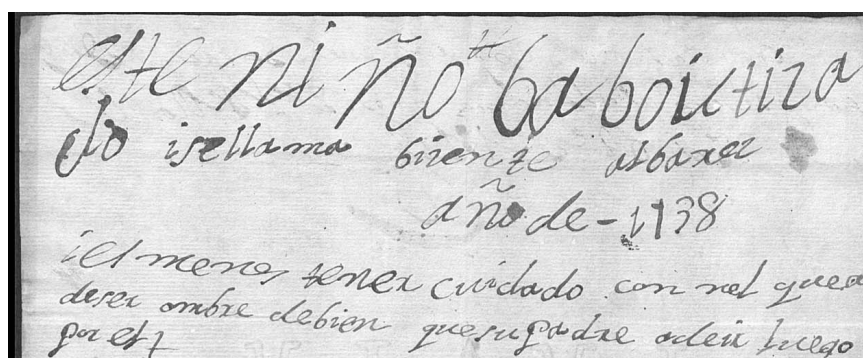 este ni ño ba boictiza
do isellama bizente albarez
año de - 1738
i es menes tener cuidado con nel que a
deser ombre debien que su padre adeir luego
por est